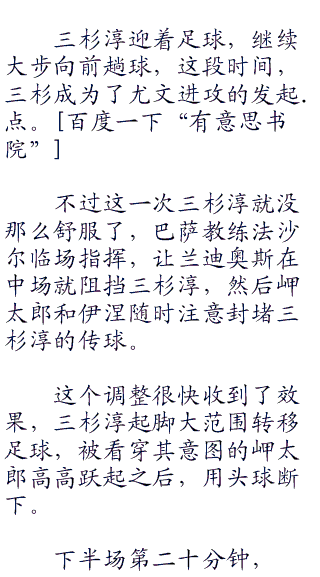 三杉淳迎着足球，继续
大步向前趟球，这段时间，
三杉成为了尤文进攻的发起.
点。[百度一下“有意思书
院”]
不过这一次三杉淳就没
那么舒服了，巴萨教练法沙
尔临场指挥，让兰迪奥斯在
中场就阻挡三杉淳，然后岬
太郎和伊涅随时注意封堵三
杉淳的传球。
这个调整很快收到了效
果，三杉淳起脚大范围转移
足球，被看穿其意图的岬太
郎高高跃起之后，用头球断
下。
下半场第二十分钟，